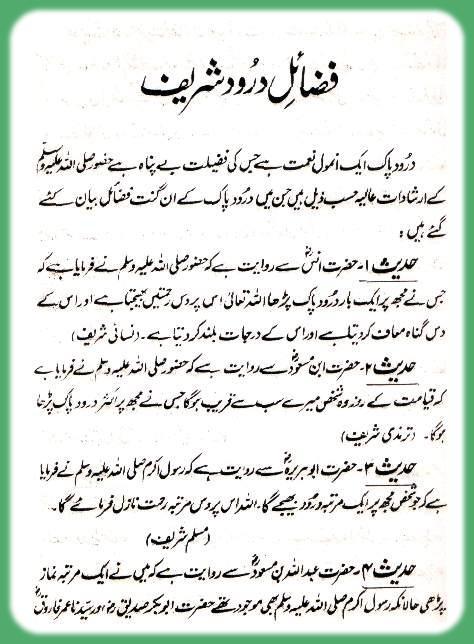 فضائلِ درُود شریف
درُود پاک ایک انمول نعمت ہے جس کی فضیلت بے پناہ ہے حضور صلی اللہ علیہ وسلم
کے ارشادات عالیہ حسب ذیل ہیں جن میں درُود پاک کے ان گنت فضائل بیان کئے
گئے ہیں :
حدیث ۱- حضرت انسؓ سے روایت ہے کہ حضور صلی اللہ علیہ وسلم نے فرمایا ہے کہ
جس نے مجھ پر ایک بار درُود پاک پڑھا اللہ تعالیٰ اس پر دس رحمتیں بھیجتا ہے اور اس کے
دس گناہ معاف کر دیتا ہے اور اس کے درجات بلند کر دیتا ہے۔ (نسائی شریف)
حدیث ۲- حضرت ابن مسعودؓ سے روایت ہے کہ حضور صلی اللہ علیہ وسلم نے فرمایا ہے
کہ قیامت کے روز وہ شخص میرے سب سے قریب ہو گا جس نے مجھ پر اکثر درود پاک پڑھا
ہو گا۔ (ترمذی شریف)
حدیث ۳- حضرت ابوہریرہؓ سے روایت ہے کہ رسول اکرم صلی اللہ علیہ وسلم نے فرمایا
ہے کہ جو شخص مجھ پر ایک مرتبہ درُود بھیجے گا۔ اللہ اس پر دس مرتبہ رحمت نازل فرمائے گا۔
(مسلم شریف)
حدیث ۴- حضرت عبداللہ بن مسعودؓ سے روایت ہے کہ میں نے ایک مرتبہ نماز
پڑھی حالانکہ رسول اکرم صلی اللہ علیہ وسلم بھی موجود تھے حضرت ابوبکر صدیقؓ اور سیدنا عمر فاروقؓ